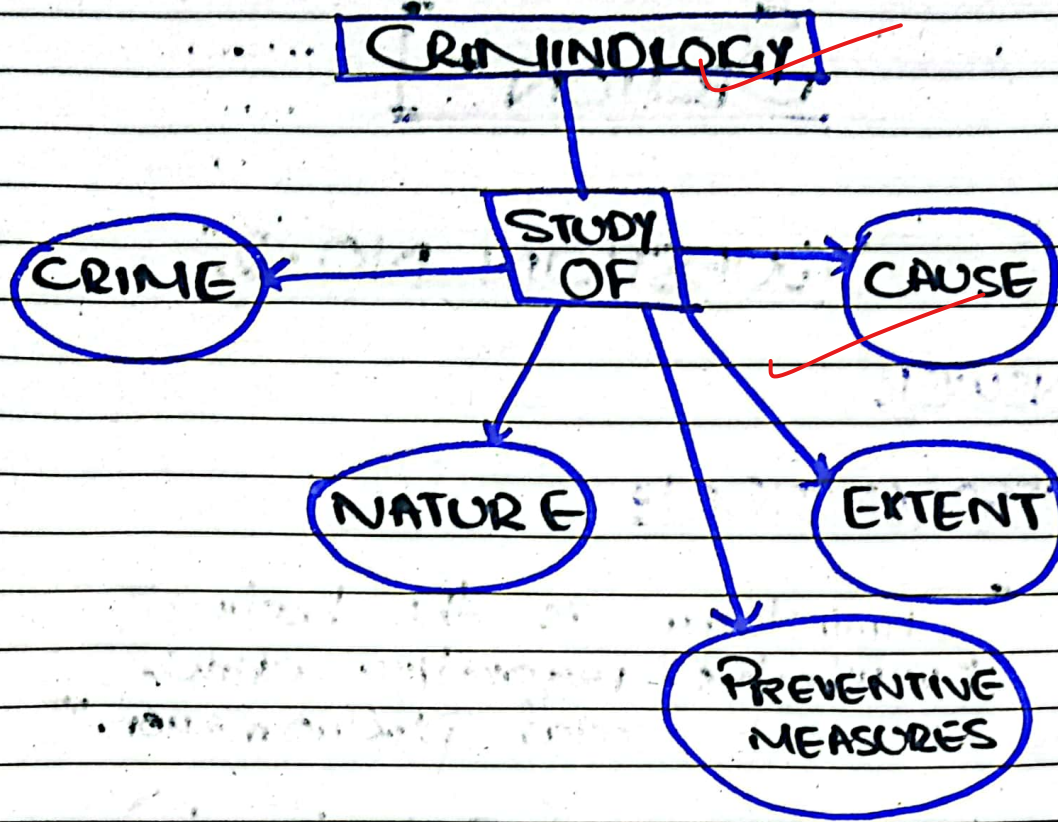 CRIMINOLOGY
STUDY
OF
CRIME
CAUSE
NATURE
EXTENT
PREVENTIVE
MEASURES